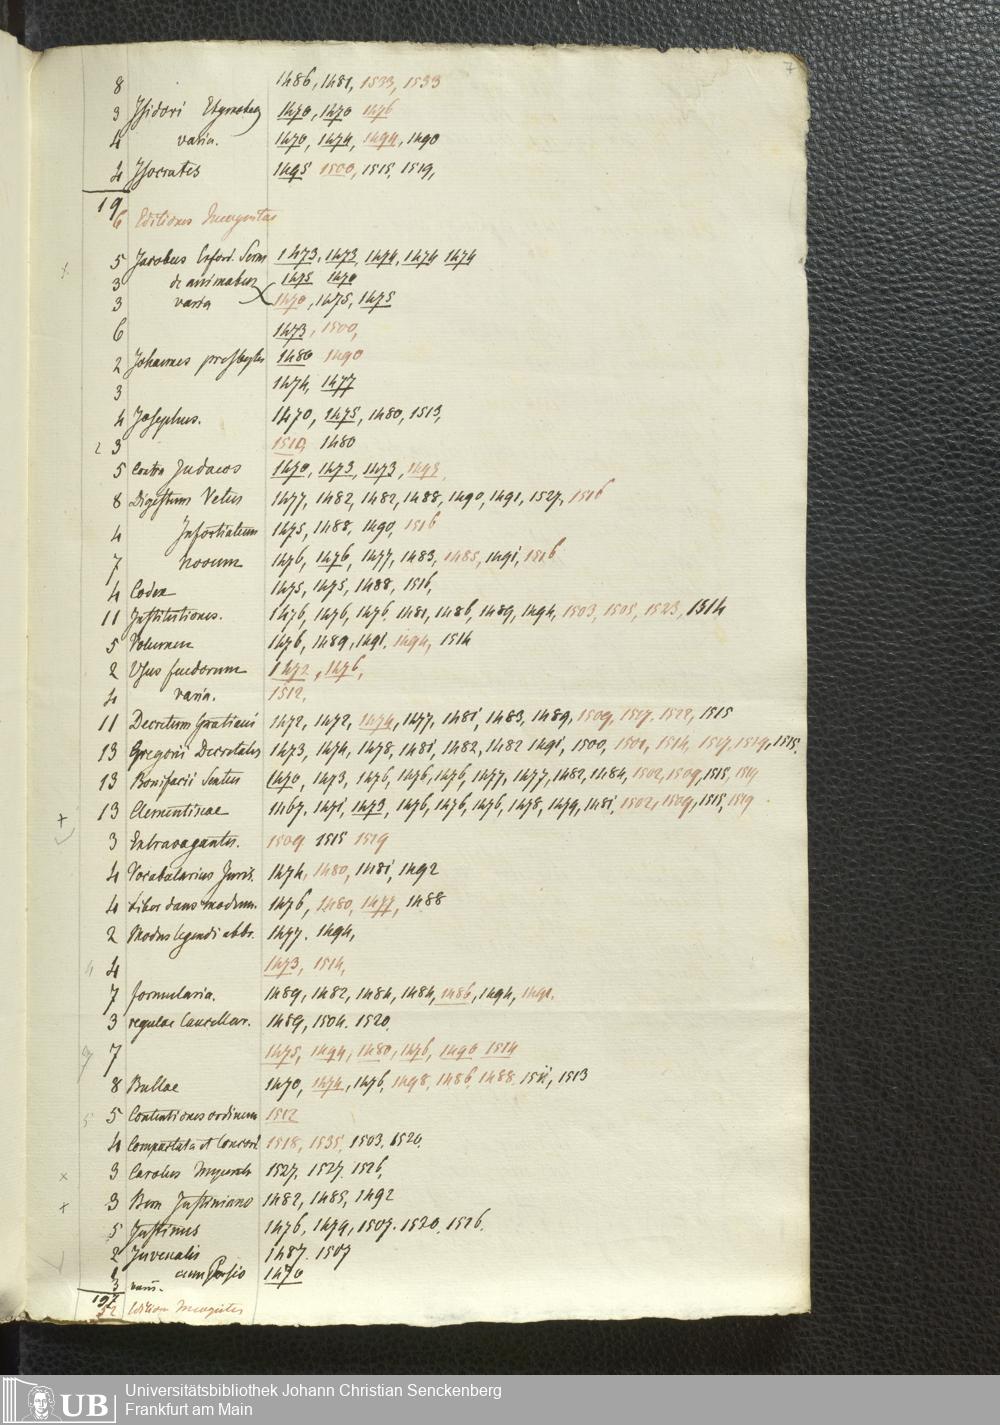 7
8 1486, 1481, 1533, 1533
3 Isidori Etymolog 1470, 1470 1476
4 varia. 1470, 1474, 1494, 1490
4 Isocrates 1495 1500, 1515, 1519,
19
6 Editiones Incognitae
5 Jacobus Erford. Serm 1473, 1473, 1474, 1474 1474
3 de animabus 1475 1470
3 varia 1470, 1475, 1475
6 1473, 1500,
2 Johannes presbyter 1480 1490
3 1474, 1477
4 Josephus. 1470, 1475, 1480, 1513,
2 3 1510, 1480
5 Contra Judaeos 1470, 1473, 1473,
8 Digestum Vetus 1477, 1482, 1482, 1488, 1490, 1491, 1527, 1516
4 Infortiatum 1475, 1488, 1490, 1516
7 novum 1476, 1476, 1477, 1483, 1485, 1491, 1516
4 Codex 1475, 1475, 1488, 1516,
11 Institutiones. 1476, 1476, 1476, 1481, 1486, 1489, 1494, 1503, 1505, 1523, 1514
5 Volumen 1476, 1489, 1491, 1494, 1514
2 Usus feudorum 1472, 1476,
4 varia. 1512,
11 Decretum Gratiani 1472, 1472, 1474, 1477, 1481, 1483, 1489, 1509, 1517, 1522, 1515
13 Gregorii Decretales 1473, 1474, 1478, 1481, 1482, 1482 1491, 1500, 1501, 1514, 1517, 1519, 1515.
13 Bonifacii Sextus 1470, 1473, 1476, 1476, 1476, 1477, 1477, 1482, 1484, 1502, 1509, 1515, 1519
+ 13 Clementinae 1467, 1471, 1473, 1476, 1476, 1476, 1478, 1479, 1481, 1502, 1509, 1515, 1519
3 Extravagantes. 1509 1515 1519
4 Vocabularius Juris. 1474, 1480, 1481, 1492
4 Liber dans modum. 1476, 1480, 1477, 1488
2 Modus legendi abbr. 1477. 1494,
4 4 1473, 1514,
7 formularia. 1489, 1482, 1484, 1484, 1486, 1494, 1491.
3 regulae Cancellar. 1489, 1504. 1520.
7 1475, 1494, 1480, 1476, 1490 1514
8 Bullae 1470, 1474, 1476, 1498, 1486, 1488, 1511, 1513
5 5 Contentiones ordinum 1512
4 Compactata et Concord 1518, 1535, 1503, 1520,
x 3 Carolus 1527, 1527. 1526,
+ 3 Bern Justiniano 1482, 1485, 1492
5 Justinus 1476, 1479, 1507. 1520, 1526.
2 Juvenalis 1487. 1507
1 cum Persio 1470
3 varii.
197
52 Edition Incognitae
UB Universitätsbibliothek Johann Christian Senckenberg
Frankfurt am Main